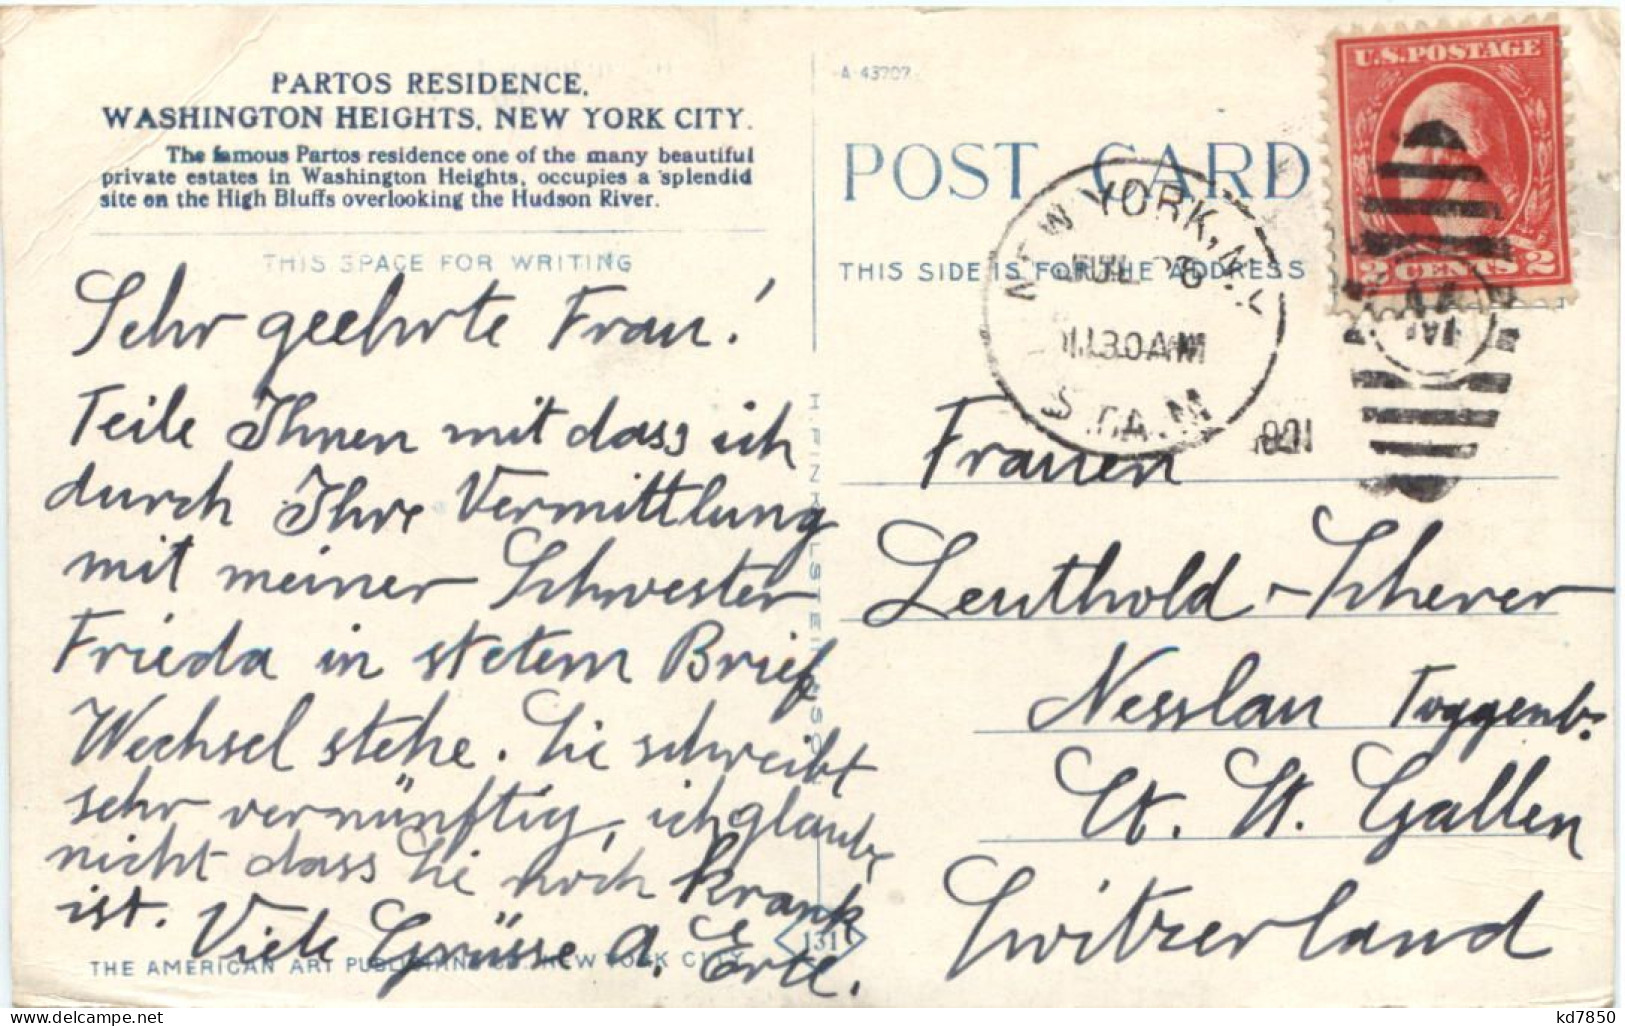 PARTOS RESIDENCE,
WASHINGTON HEIGHTS, NEW YORK CITY.
The famous Partos residence one of the many beautiful
private estates in Washington Heights, occupies a splendid
site on the High Bluffs overlooking the Hudson River.
THIS SPACE FOR WRITING
Sehr geehrte Frau!
Teile Ihnen mit dass ich
durch Ihre Vermittlung
mit meiner Schwester
Frieda in stetem Brief
Wechsel stehe. Sie schreibt
sehr vernünftig, ich glaube
nicht dass Sie noch krank
ist. Viele Grüsse A.
THE AMERICAN ART NEW YORK CITY
131
A 43707
POST CARD
THIS SIDE IS FOR THE ADDRESS
U.S. POSTAGE
2 CENTS 2
NEW YORK, N.Y.
JUL
1130 AM
STA. M
Frauen
Leuthold-Scherer
Nesslau Toggenb.
Ct. St. Gallen
Switzerland
kd7850